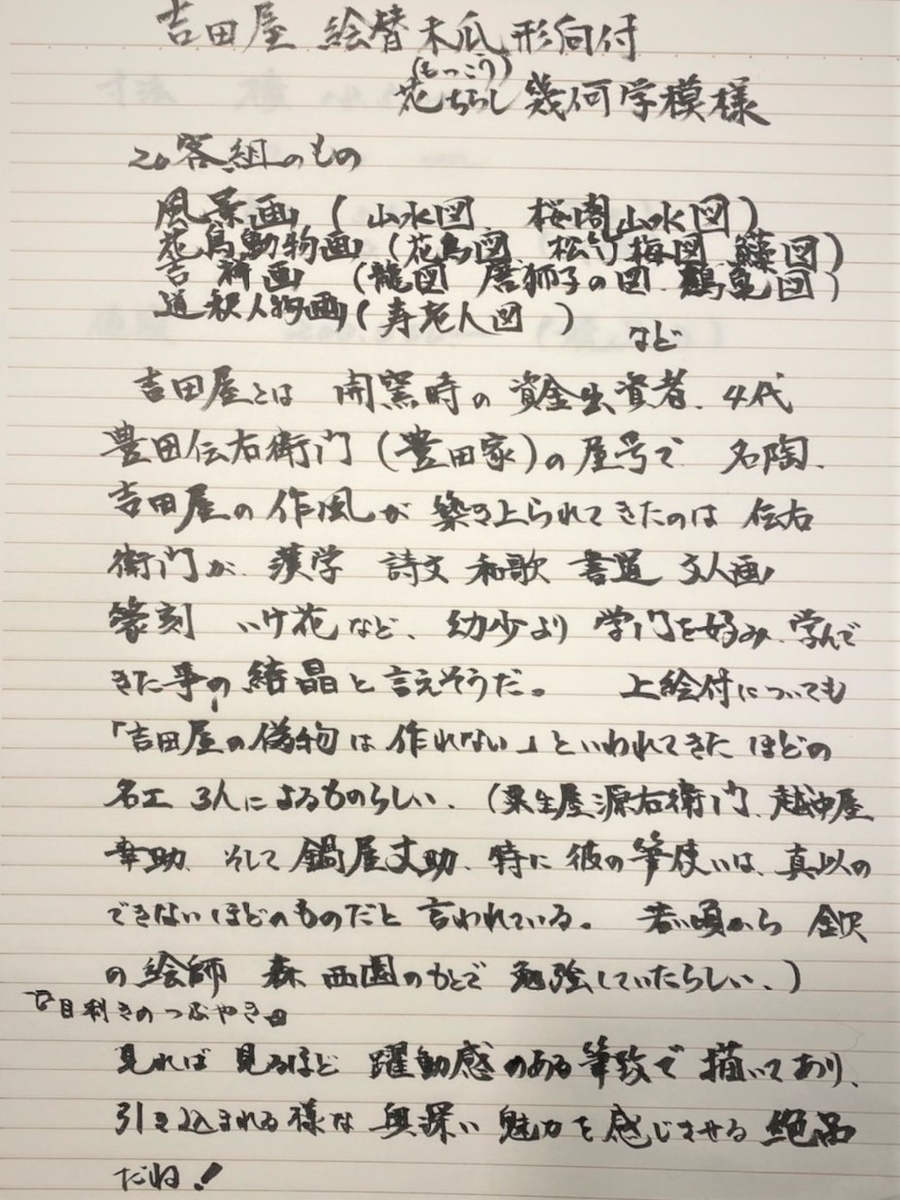 吉田屋 絵替木瓜形向付
(もっこう)
花ちらし 幾何学模様
20客組のもの
風景画 (山水図 桜閣山水図)
花鳥動物画 (花鳥図 松竹梅図 鯉図)
吉祥画 (龍図 唐獅子の図 鶴亀図)
道釈人物画(寿老人図 )
など
吉田屋とは 開窯時の 資金出資者、4代
豊田伝右衛門(豊田家)の屋号で 名陶、
吉田屋の作風が 築き上られてきたのは 伝右
衛門が 漢学 詩文 和歌 書道 文人画
篆刻 いけ花など、 幼少より 学門を好み 学んで
きた事の 結晶と言えそうだ。 上絵付についても
「吉田屋の偽物は 作れない」といわれてきた ほどの
名工 3人によるものらしい、(粟生屋源右衛門、越中屋
幸助、そして 鍋屋丈助、特に 彼の筆使いは、真似の
できないほどのものだと 言われている。 若い頃から 金沢
の絵師 森 西園のもとで 勉強していたらしい、)
目利きのつぶやき
見れば 見るほど 躍動感のある筆致で 描いてあり、
引き込まれる様な 奥深い 魅力を 感じさせる 絶品
だね!